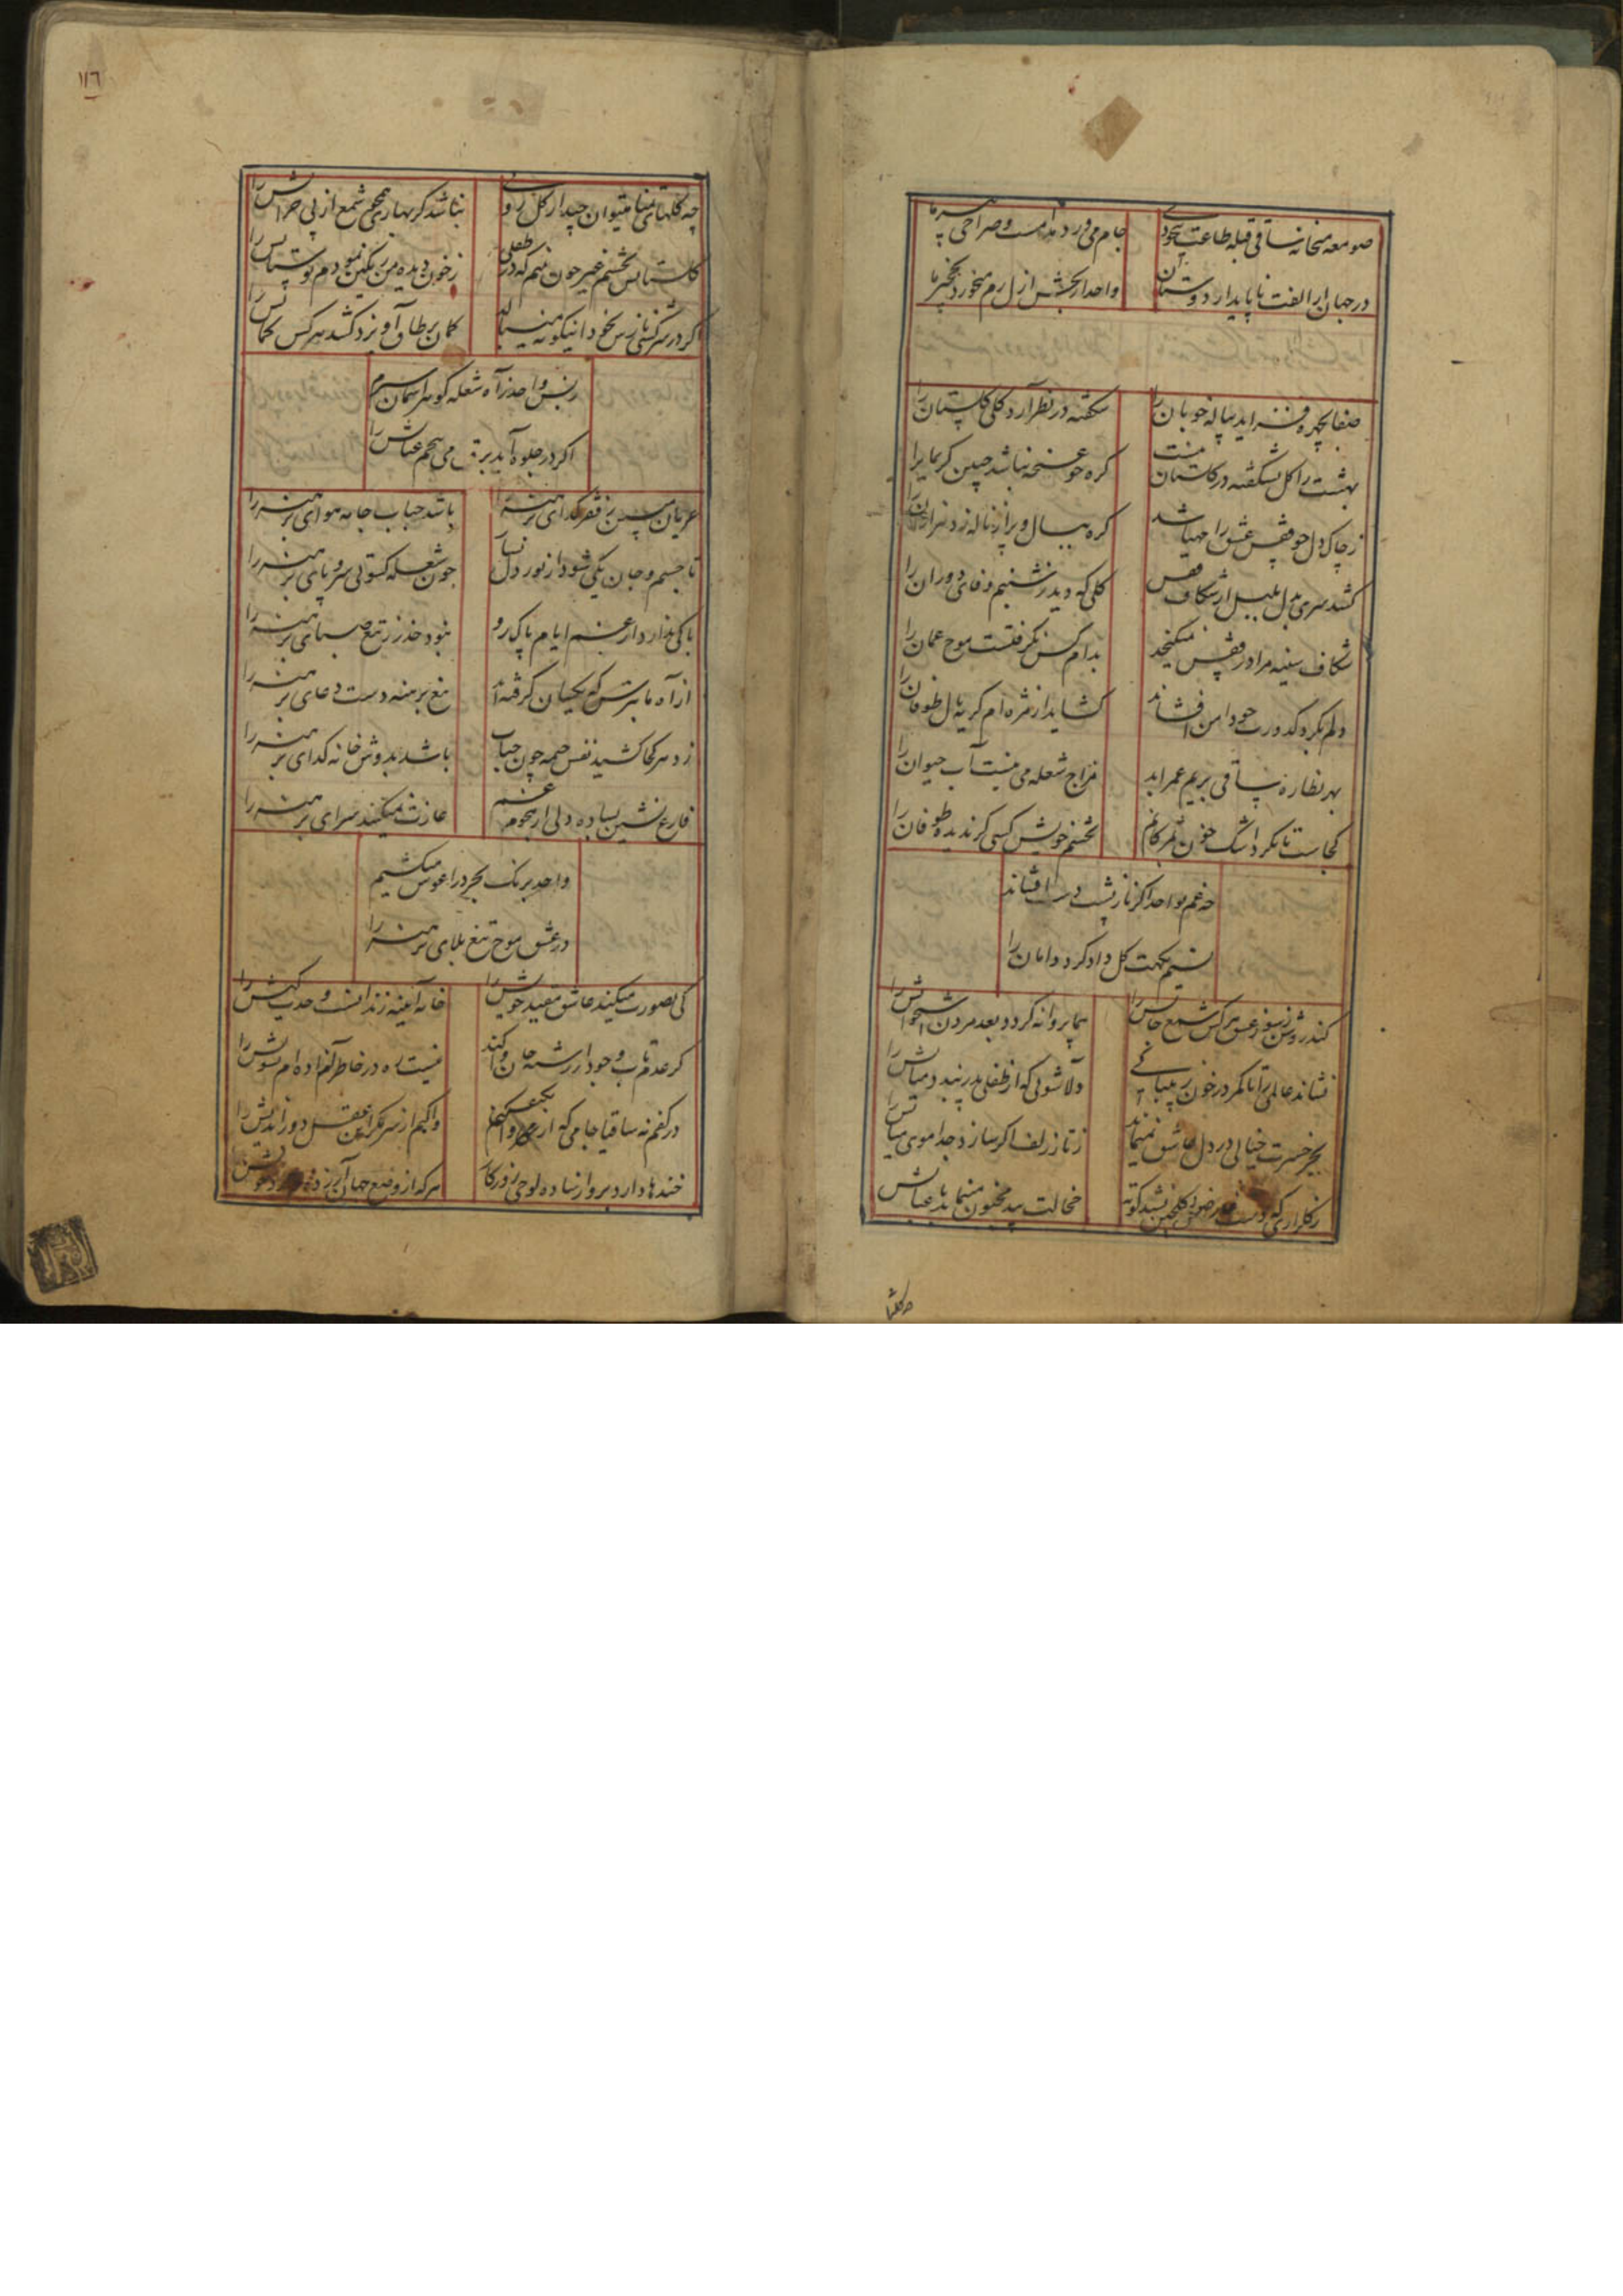 صومعه میخانه ساقی قبله طاعت بیخودی
جام می ورد مدامست و صراحی پیر ما
در جهان الفت ناپایدار دوستان
واحد از بخشش ازل رم میخورد نخجیر ما
صفا بچهره فزاید پیاله خوبان را
شکفته در نظر آرد گلی گلستان را
بهشت را گل نشکفته در گلستان نیست
گره چو غنچه نباشد جبین کریمانرا
ز چاک دل چو قفس عشق را مهیا شد
گره ببال و پر از ناله زد هزاران را
کشد سری بدل بلبل از شکاف قفس
گلی که دید ز شبنم وفای دوران را
شکاف سینه مرا در قفس نمیگنجد
بدام کس نگرفتست موج عمان را
دلم بگرد کدورت چو دامن افشاند
گشاید از مژه ام گریه بال طوفان را
بهر نظاره ساقی بریم عمر ابد
مزاج شعله می نیست آب حیوان را
کجاست تا نگرد اشک خون مژگانم
بچشم خویش کسی گر ندیده طوفان را
چه غم بواحد اگر ناز پشت دست افشاند
نسیم نکهت گل داد گرد دامان را
کند روشن ز سوز عشق هر کس شمع جانش را
هما پروانه گردد بعد مردن استخوانش را
نشاند عالمی را تا کمر در خون بیتابی
دلاشوبی که از طفلی پدر بندد میانش را
بجز حسرت خیالی در دل عاشق نمیماند
ز تار زلف اگر سازد جدا موی میانش را
ز گلزاری که دست گلچین شد کوته
خجالت بید مجنون مینماید باغبانش را
چه گلهای تمنا میتوان چید از گل روی
نباشد گر بهاری همچو شمع از پی خزانش را
گلستانش بچشم غیر چون بینم که در طفلی
ز خون دیده من رنگین نمودم بوستانش را
اگر در سرکشی نازش بخود اینگونه میبالد
کمان بر طاق آویزد کشد هر کس کمانش را
ز بس واحد ز آه شعله گوهر آسمان سوزم
اگر در جلوه آید برق می پیچم عنانش را
عریان مبین ز فقر گدای برهنه را
باشد حباب جامه هوای برهنه را
تا جسم و جان یکی شود از نور دل نسازد
چون شعله کسوتی سر و پای برهنه را
باکی ندارد از غم ایام پاک رو
نبود حذر ز تیغ صبای برهنه را
از آه ما بترس که یکسان گرفته اند
تیغ برهنه دست دعای برهنه را
زد هر کجا کشید نفس خیمه چون حباب
باشد بدوش خانه گدای برهنه را
فارغ نشین بساده دلی از هجوم غم
غارت نمیکنند سرای برهنه را
واحد برنگ بحر در آغوش میکشیم
در عشق موج تیغ بلای برهنه را
کی بصورت میکند عاشق مقید خویش را
خانه آیینه زندانست وحدت کیش را
گر عدم تاب وجود از رشته جان وا کند
نیست ره در خاطر آزاده ام تشویش را
در کفم نه ساقیا جامی که از
واکنم از سر گرانی عقل دوراندیش را
خندها دارد بر وا ز ساده لوحی روزگار
هر که از وضع جهان
در گلها
١١٦